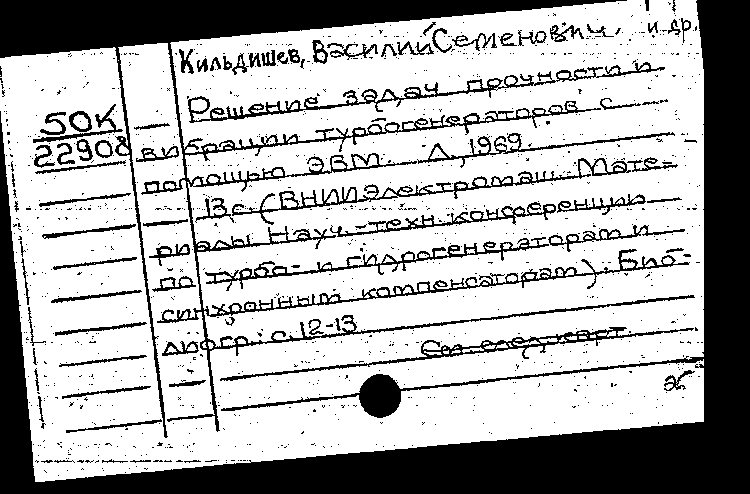 Кильдишев, Василий Семенович. и др.
50К
22908
Решение задач прочности и
вибрации турбогенераторов с
помощью ЭВМ. Л., 1969.
13с. (ВНИИЭлектромаш. Мате=
риалы Науч.-техн. конференции
по турбо- и гидрогенераторам и
синхронным компенсаторам). Биб-
лиогр.: с. 12-13
См. след. карт.